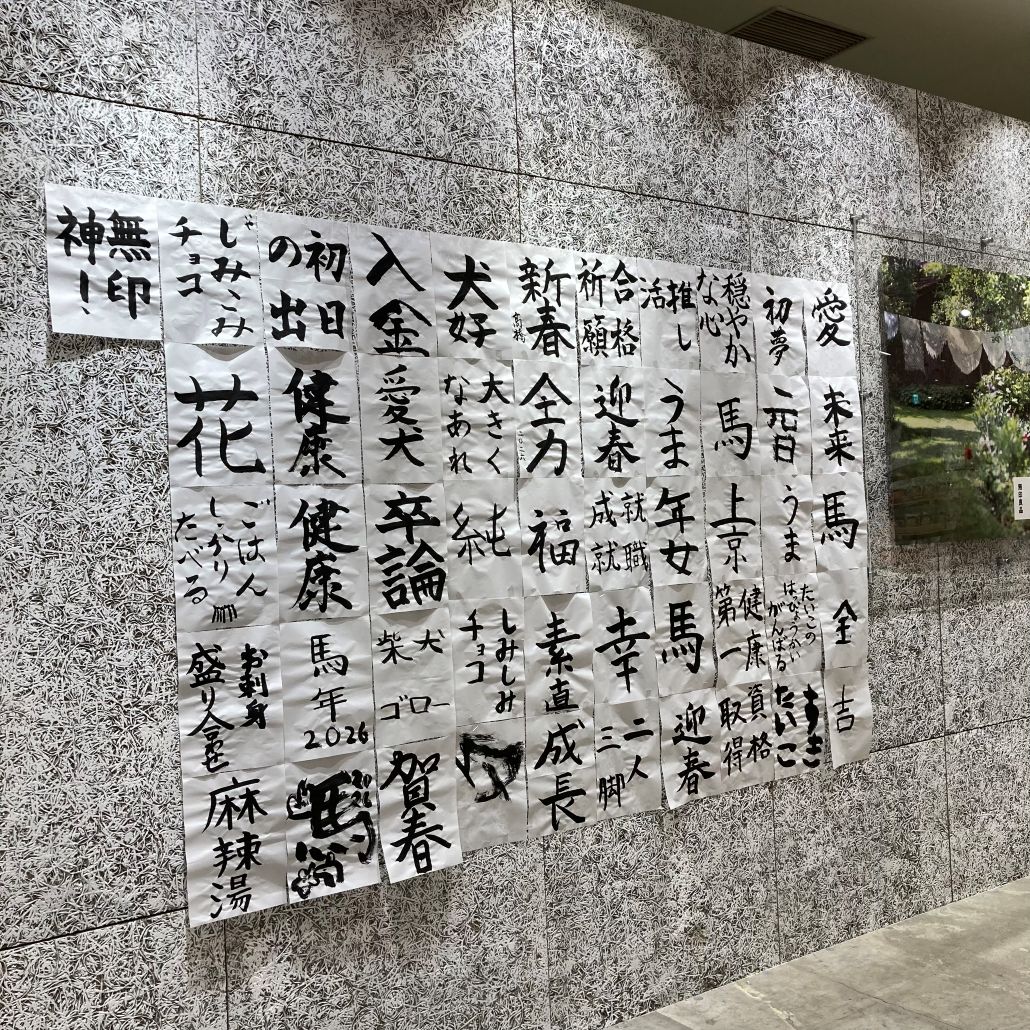 愛
未来
馬
全
吉
初夢
元日
うま
たいこの
はぴょうかい
がんばる
たいこ
穏やか
な心
馬
上京
健康
第一
資格
取得
推し
活
うま
年女
馬
迎春
合格
祈願
迎春
就職
成就
幸
二人
三脚
新春
全力
二〇二六
福
素直
成長
犬好
大きく
なあれ
純
しみしみ
チョコ
入金
愛犬
卒論
柴犬
ゴロー
賀春
初日
の出
健康
健康
馬年
2026
馬
2026
しみこみ
チョコ
花
ごはん
しっかり
たべる
お刺身
盛り合わせ
麻辣湯
無印
神!